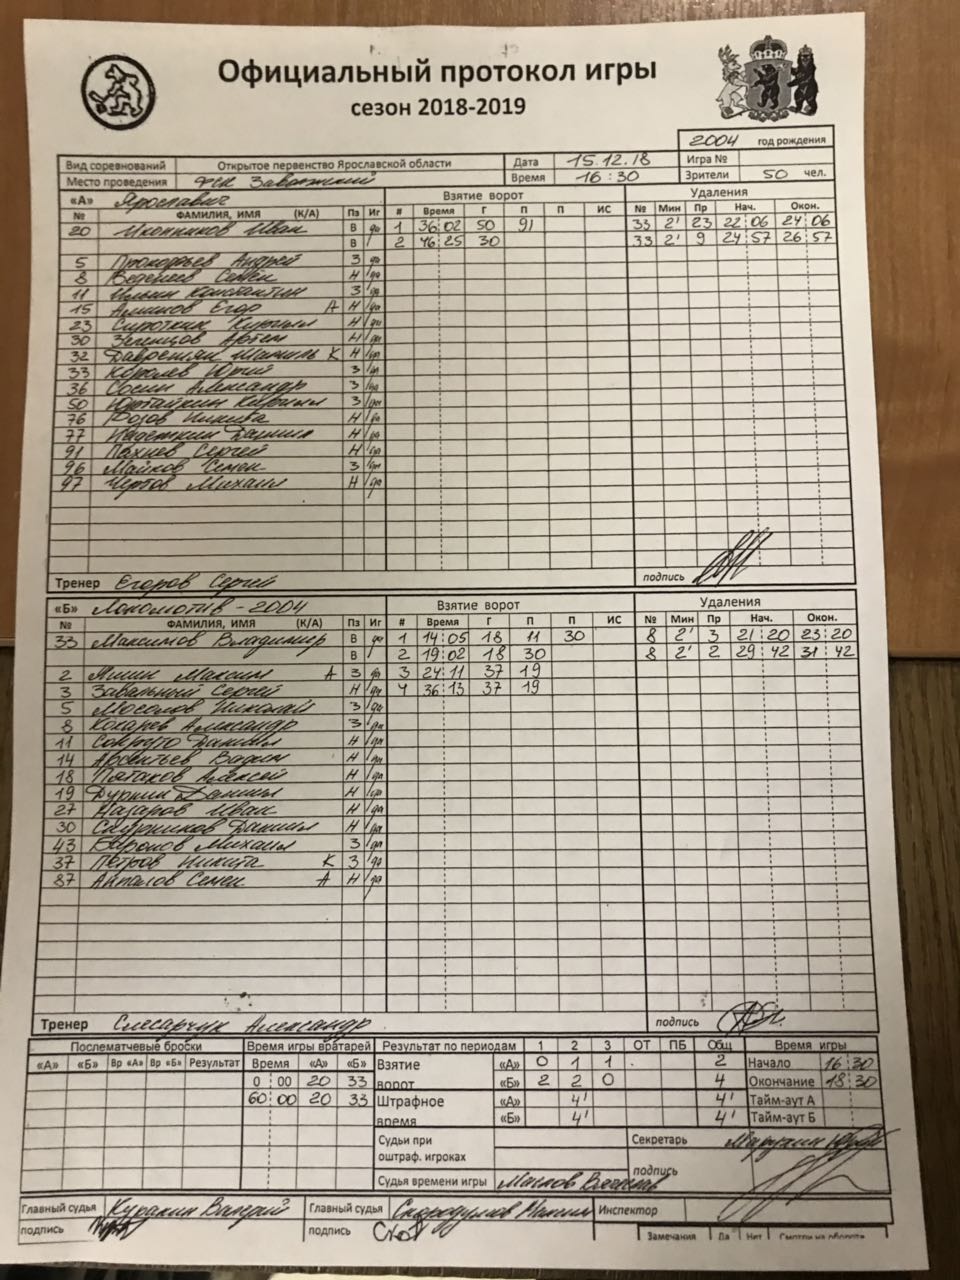 Официальный протокол игры
сезон 2018-2019
2004 год рождения
Вид соревнований Открытое первенство Ярославской области Дата 15.12.18 Игра №
Место проведения ФСК Заволжский Время 16:30 Зрители 50 чел.
«А» Ярославич Взятие ворот Удаления
№ ФАМИЛИЯ, ИМЯ (К/А) Пз Иг # Время Г П П ИС № Мин Пр Нач. Окон.
20 Иконников Иван В да 1 36:02 50 91 33 2' 23 22:06 24:06
В 2 46:25 30 33 2' 9 24:57 26:57
5 Прокофьев Андрей З да
8 Веденеев Семен Н да
11 Ильин Константин З да
15 Аминов Егор А Н да
23 Сироткин Кирилл Н да
30 Зеленцов Артем Н да
32 Шамиль К Н да
33 Королев Юрий З да
36 Сосин Александр З да
50 Юртайкин Кирилл З да
76 Розов Никита Н да
77 Надежкин Даниил Н да
91 Пахнев Сергей Н да
96 Майков Семен З да
97 Чертов Михаил Н да
Тренер Егоров Сергей подпись
«Б» Локомотив-2004 Взятие ворот Удаления
№ ФАМИЛИЯ, ИМЯ (К/А) Пз Иг # Время Г П П ИС № Мин Пр Нач. Окон.
33 Максимов Владимир В да 1 14:05 18 11 30 8 2' 3 21:20 23:20
В 2 19:02 18 30 8 2' 2 29:42 31:42
2 Максим А З да 3 24:11 37 19
3 Завальный Сергей Н да 4 36:13 37 19
5 Мосолов Николай З да
8 Кокарев Александр З да
11 Даниил Н да
14 Арсентьев Вадим Н да
18 Патахов Алексей Н да
19 Дурнин Даниил Н да
27 Назаров Иван Н да
30 Даниил Н да
43 Баронов Михаил З да
37 Петров Никита К З да
87 Семен А Н да
Тренер Слесарчук Александр подпись
Послематчевые броски Время игры вратарей Результат по периодам 1 2 3 ОТ ПБ Общ Время игры
«А» «Б» Вр «А» Вр «Б» Результат Время «А» «Б» Взятие ворот «А» 0 1 1 2 Начало 16:30
0:00 20 33 «Б» 2 2 0 4 Окончание 18:30
60:00 20 33 Штрафное время «А» 4' 4' Тайм-аут А
«Б» 4' 4' Тайм-аут Б
Судьи при оштраф. игроках Секретарь
подпись
Судья времени игры Маслов
Главный судья Куракин Валерий Главный судья Скородумов Максим Инспектор
подпись подпись Замечания Да Нет Смотри на обороте